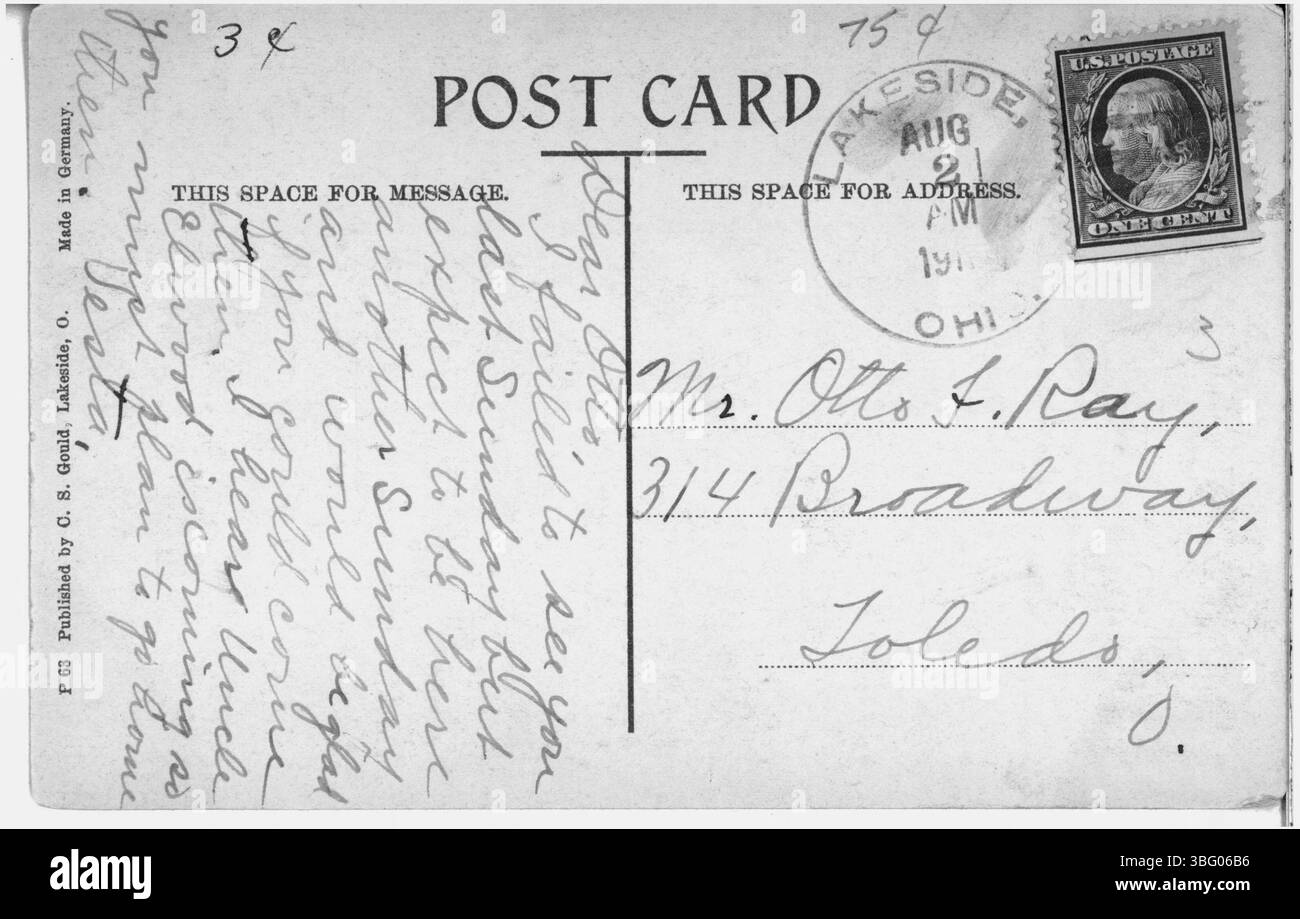 3 ¢
75 ¢
POST CARD
U.S. POSTAGE
ONE CENT
LAKESIDE,
AUG
21
AM
OHIO.
THIS SPACE FOR MESSAGE.
THIS SPACE FOR ADDRESS.
Dear Otto,
I failed to see you
last Sunday but
expect to be here
another Sunday
and would be glad
if you could come
then. I hear Uncle
Elwood is coming so
you must plan to go home
then.
Vesta,
Mr. Otto F. Ray,
314 Broadway,
Toledo,
O.
P 63 Published by C. S. Gould, Lakeside, O. Made in Germany.
alamy
Image ID: 3BG06B6
www.alamy.com